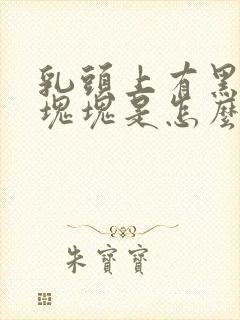 乳頭上有黑
塊塊是怎麼
朱寶寶